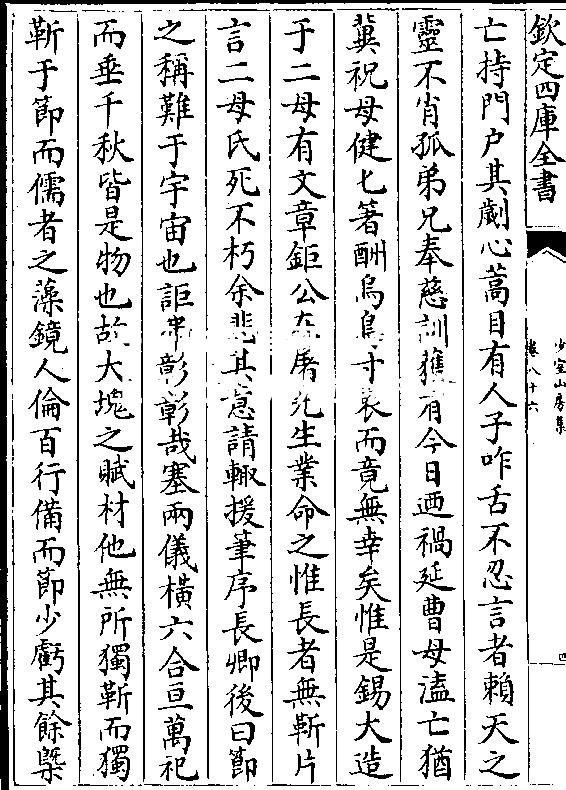 欽定四庫全書
少室山房集
卷八十六
四
亡持門户其劌心蒿目有人子咋舌不忍言者賴天之
靈不肖孤弟兄奉慈訓獲有今日迺禍延曹母溘亡猶
冀祝母健匕箸酬烏鳥寸衷而竟無幸矣惟是錫大造
于二母有文章鉅公在屠先生業命之惟長者無靳片
言二母氏死不朽余悲其意請輙援筆序長卿後曰節
之稱難于宇宙也詎弗彰彰哉塞兩儀橫六合亘萬祀
而垂千秋皆是物也故大塊之賦材他無所獨靳而獨
靳于節而儒者之藻鏡人倫百行備而節少虧其餘槩